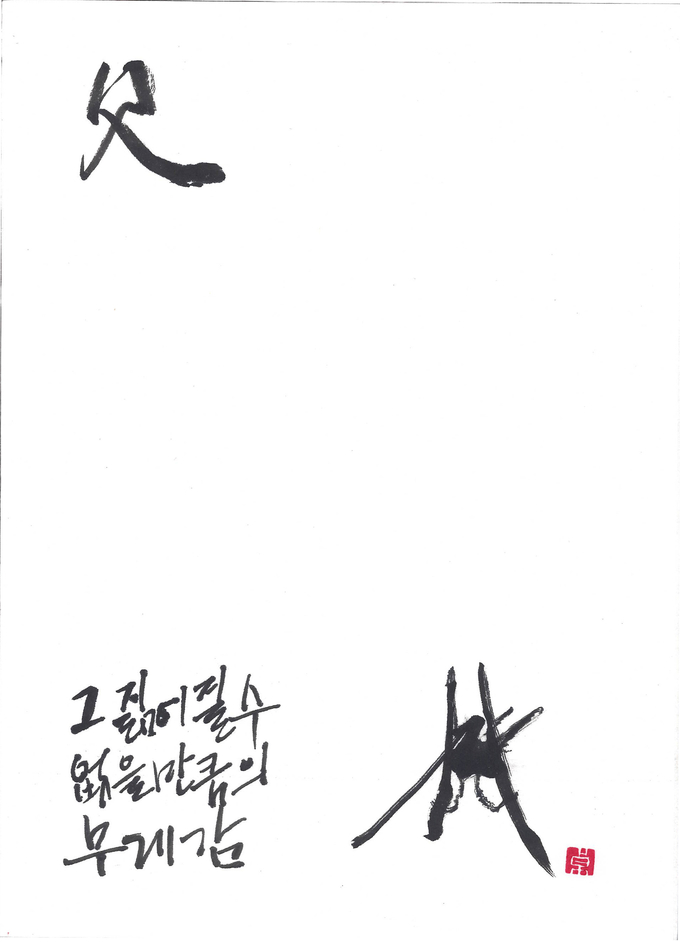 父
그 짊어질 수
없을 만큼의
무게감